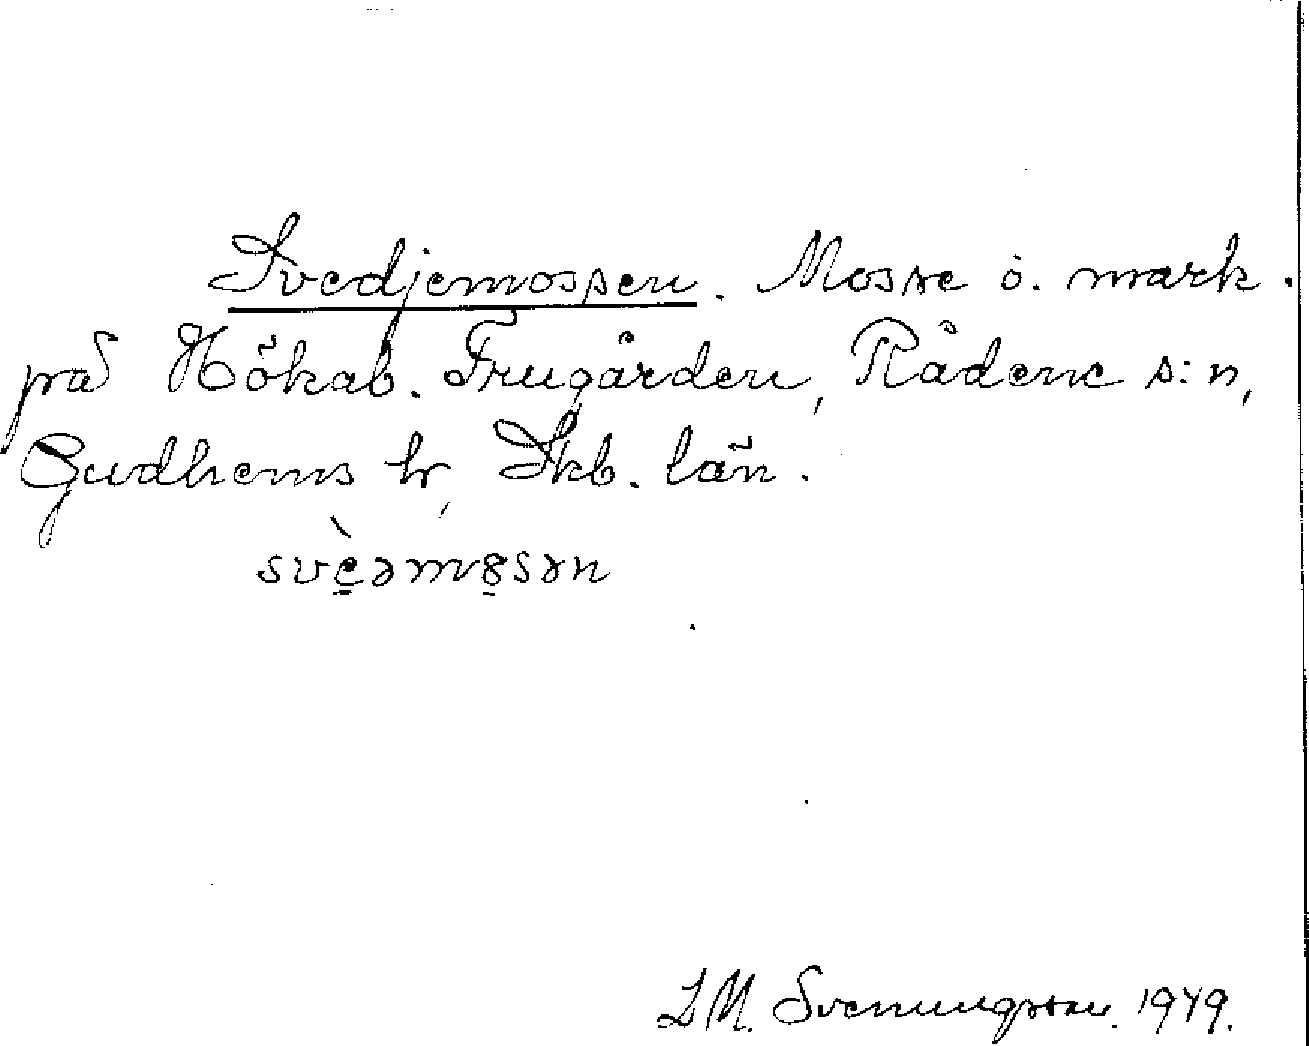 Svedjemossen. Mosse o. mark.
på Hökab. Frugården, Rådene s:n,
Gudhems hr, Skb. län.
svè̱əmo̱sən
L M. Svenungsson. 1949.